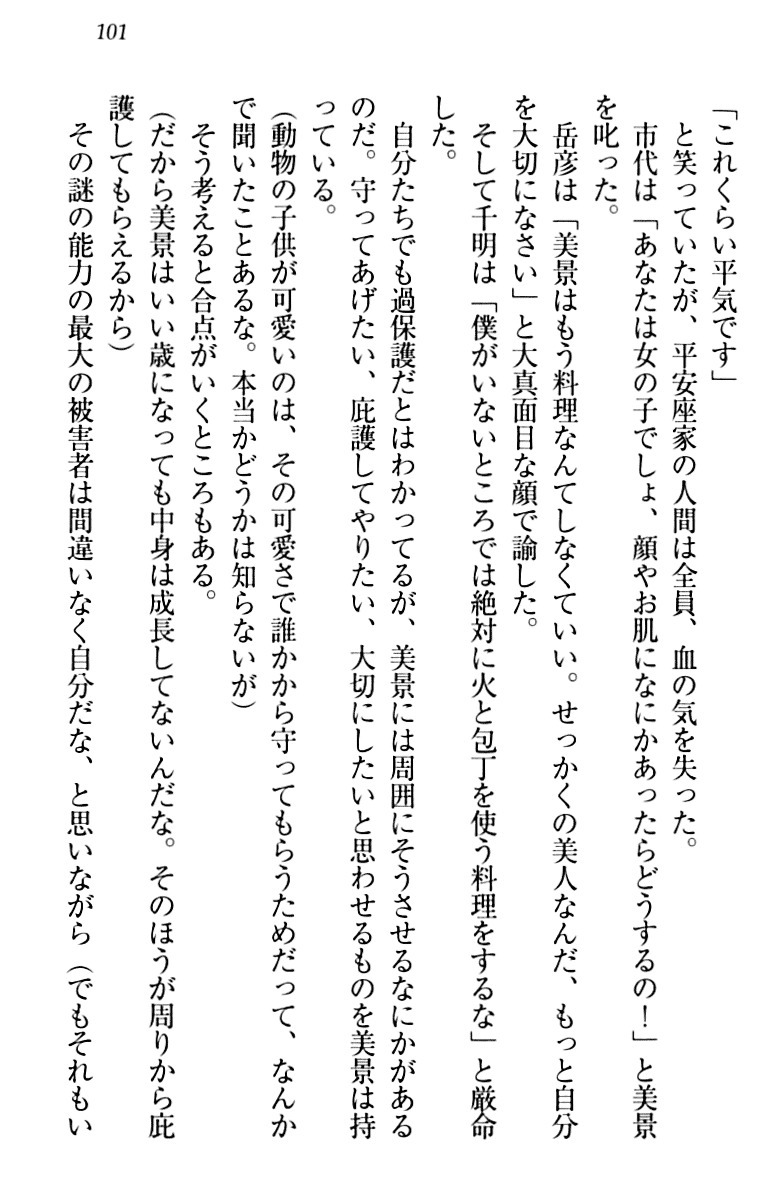 101
「これくらい平気です」
と笑っていたが、平安座家の人間は全員、血の気を失った。
市代は「あなたは女の子でしょ、顔やお肌になにかあったらどうするの！」と美景
を叱った。
岳彦は「美景はもう料理なんてしなくていい。せっかくの美人なんだ、もっと自分
を大切になさい」と大真面目な顔で諭した。
そして千明は「僕がいないところでは絶対に火と包丁を使う料理をするな」と厳命
した。
自分たちでも過保護だとはわかってるが、美景には周囲にそうさせるなにかがある
のだ。守ってあげたい、庇護してやりたい、大切にしたいと思わせるものを美景は持
っている。
（動物の子供が可愛いのは、その可愛さで誰かから守ってもらうためだって、なんか
で聞いたことあるな。本当かどうかは知らないが）
そう考えると合点がいくところもある。
（だから美景はいい歳になっても中身は成長してないんだな。そのほうが周りから庇
護してもらえるから）
その謎の能力の最大の被害者は間違いなく自分だな、と思いながら（でもそれもい